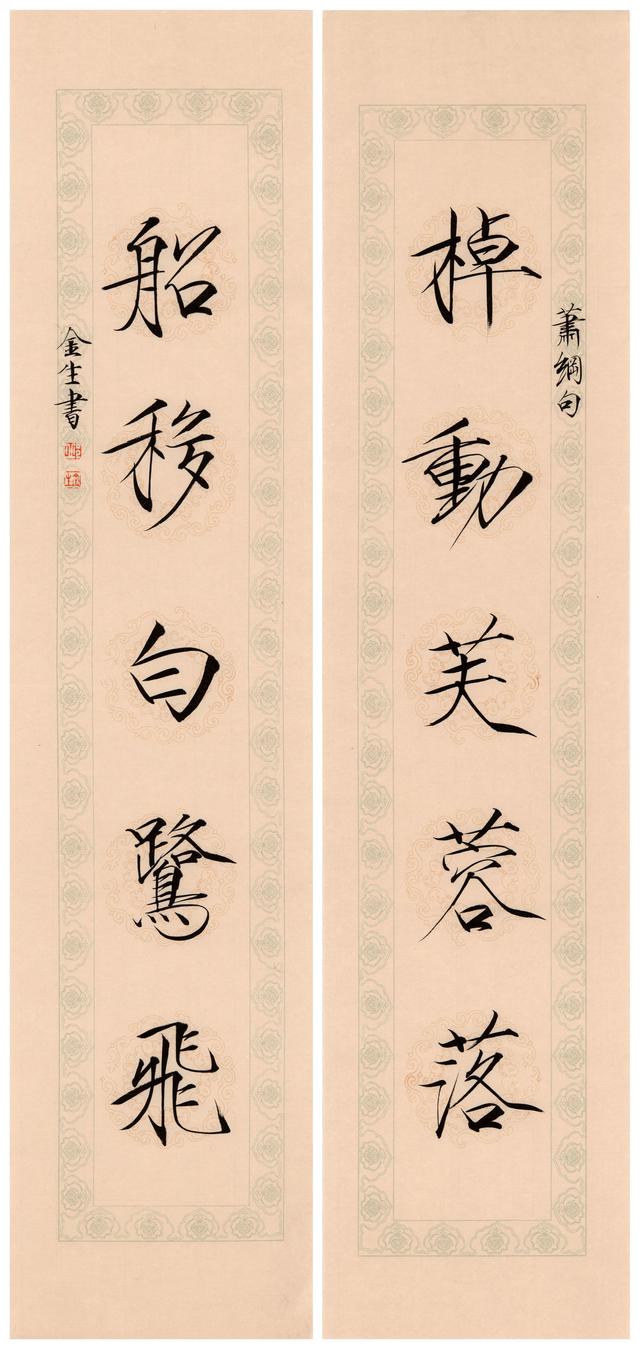 蕭綱句
棹動芙蓉落
船移白鷺飛
金生書